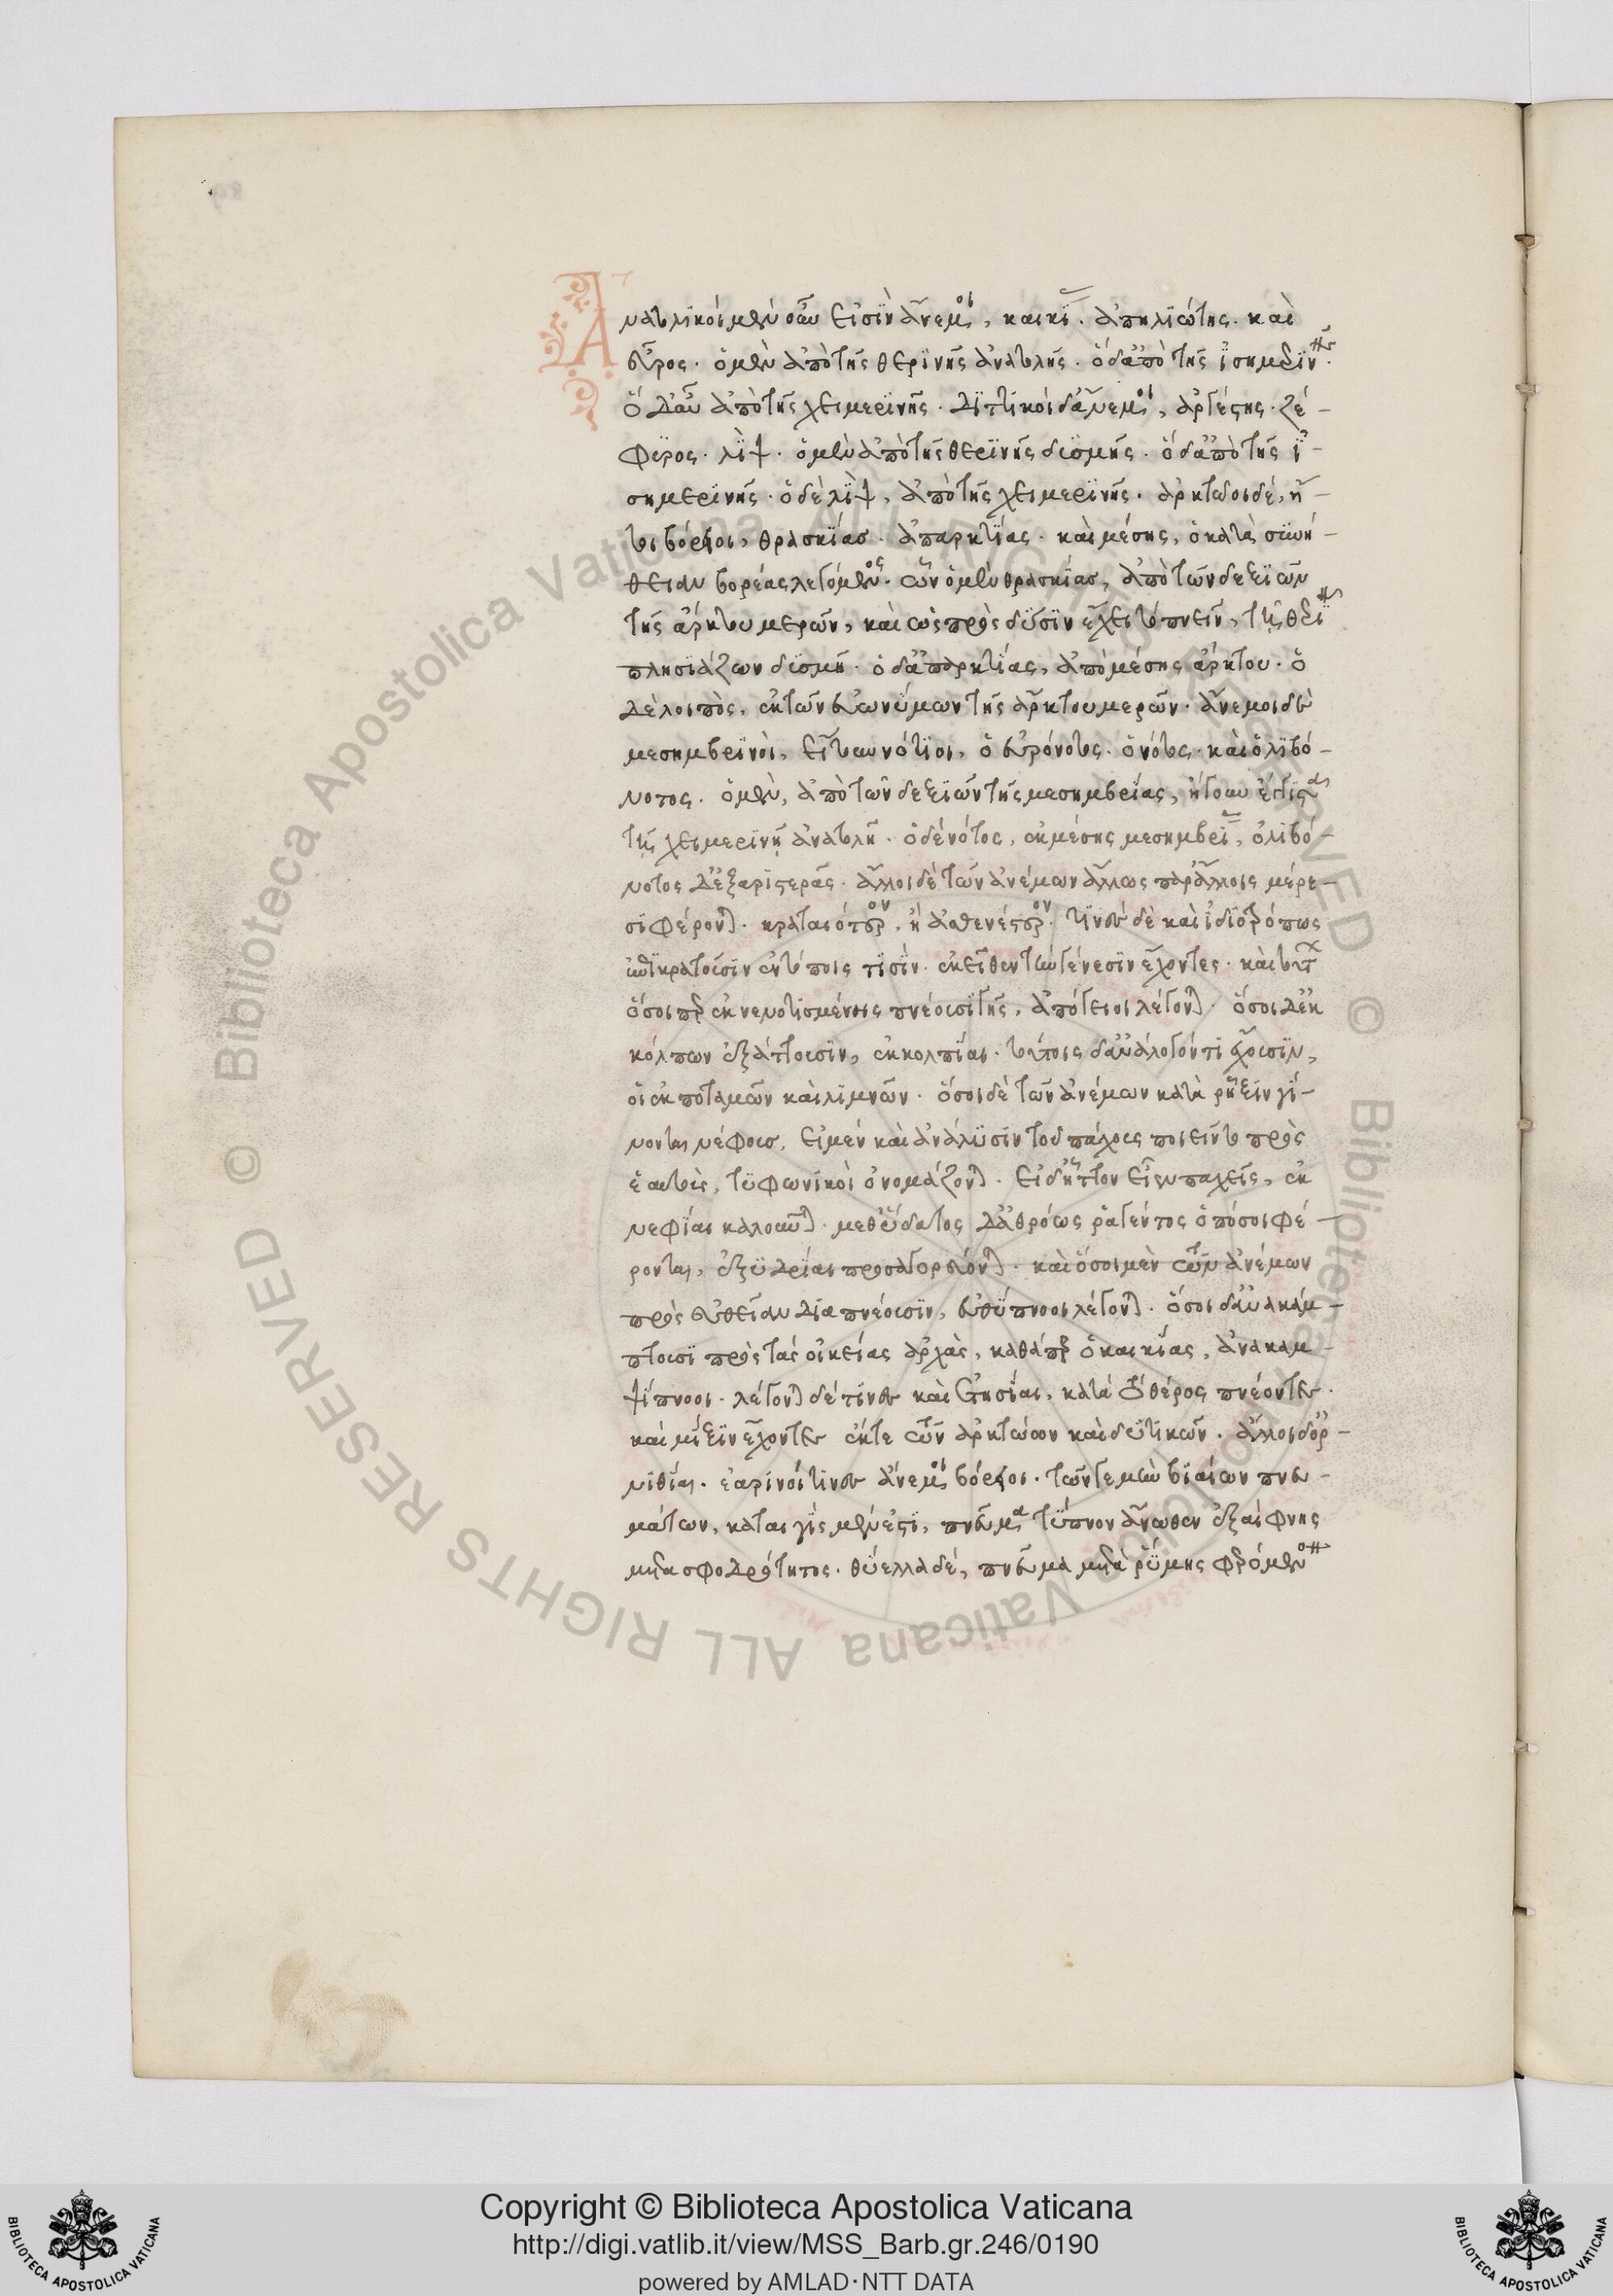 Ἀνατολικοὶ μὲν οὖν εἰσὶν ἄνεμοι, καικί. ἀπηλιώτης. καὶ
εὖρος. ὁ μὲν ἀπὸ τῆς θερινῆς ἀνατολῆς. ὁ δ' ἀπὸ τῆς ἰσημερινῆς.
ὁ δ' αὖ ἀπὸ τῆς χειμερινῆς. δυτικοὶ δ' ἄνεμοι, ἀργέστης. ζέ-
φυρος. λίψ. ὁ μὲν ἀπὸ τῆς θερινῆς δυσμῆς. ὁ δ' ἀπὸ τῆς ἰ-
σημερινῆς. ὁ δὲ λίψ, ἀπὸ τῆς χειμερινῆς. ἀρκτῶοι δέ, ἤ-
τοι βόρειοι, θρασκίας. ἀπαρκτίας. καὶ μέσης, ὁ κατὰ συνή-
θειαν βορέας λεγόμενος. ὧν ὁ μὲν θρασκίας, ἀπὸ τῶν δεξιῶν
τῆς ἄρκτου μερῶν, καὶ ὡς πρὸς δύσιν ἔχει τὸ πνεῖν, τῇ θερινῇ
πλησιάζων δυσμῇ. ὁ δ' ἀπαρκτίας, ἀπὸ μέσης ἄρκτου. ὁ
δὲ λοιπὸς, ἐκ τῶν εὐωνύμων τῆς ἄρκτου μερῶν. ἄνεμοι δὲ
μεσημβρινοὶ, εἴτουν νότιοι, ὁ εὐρόνοτος. ὁ νότος. καὶ ὁ λιβό-
νοτος. ὁ μὲν, ἀπὸ τῶν δεξιῶν τῆς μεσημβρίας, ἤγουν
τῇ χειμερινῇ ἀνατολῇ. ὁ δὲ νότος, ἐκ μέσης μεσημβρί, ὁ λιβό-
νοτος δ' ἐξ ἀριστερᾶς. ἄλλοι δὲ τῶν ἀνέμων ἄλλως παρ' ἄλλοις μέρε-
σι φέρονται. κραταιότερον, ἢ ἀσθενέστερον. τινὲς δὲ καὶ ἰδιοτρόπως
ἐπικρατοῦσιν ἐν τόποις τισὶν. ἐκεῖθεν τὴν γένεσιν ἔχοντες. καὶ
ὅσοιπερ ἐκ νενοτισμένης πνέουσι γῆς, ἀπόγειοι λέγονται. ὅσοι δ' ἐκ
κόλπων ἐξάττουσιν, ἐκκολπίαι. τούτοις δ' ἀνάλογόν τι ἔχουσιν,
οἱ ἐκ ποταμῶν καὶ λιμνῶν. ὅσοι δὲ τῶν ἀνέμων κατὰ ρῆξιν γί-
νονται νέφους, εἰ μὲν καὶ ἀνάλυσιν τοῦ πάχους ποιεῖν τὸ πρὸς
ἑαυτοὺς, τυφωνικοὶ ὀνομάζονται. εἰ δ' ἧττον εἶεν παχεῖς, ἐκ
νεφίαι καλοῦνται. μεθ' ὕδατος δ' ἀθρόως ῥαγέντος ὁπόσοι φέ-
ρονται, ἐξυδρίαι προσαγορεύονται. καὶ ὅσοι μὲν τῶν ἀνέμων
πρὸς εὐθεῖαν διαπνέουσιν, εὐθύπνοοι λέγονται. ὅσοι δ' ἀνακάμ-
πτουσι πρὸς τὰς οἰκείας ἀρχὰς, καθάπερ ὁ καικίας, ἀνακαμ-
ψίπνοοι. λέγονται δέ τινες καὶ ἐτησίαι, κατὰ τὸ θέρος πνέοντες.
καὶ μίξιν ἔχοντες ἔκ τε τῶν ἀρκτώων καὶ δυτικῶν. ἄλλοι δ' ὀρ-
νιθίαι. ἐαρινοί τινες ἄνεμοι βόρειοι. τῶν γε μὴν βιαίων πνευ-
μάτων, καταιγὶς μὲν ἐστι, πνεῦμα τύπτον ἄνωθεν ἐξαίφνης
μετὰ σφοδρότητος. θύελλα δέ, πνεῦμα μετὰ ῥύμης φερόμενον
Copyright © Biblioteca Apostolica Vaticana
http://digi.vatlib.it/view/MSS_Barb.gr.246/0190
powered by AMLAD·NTT DATA